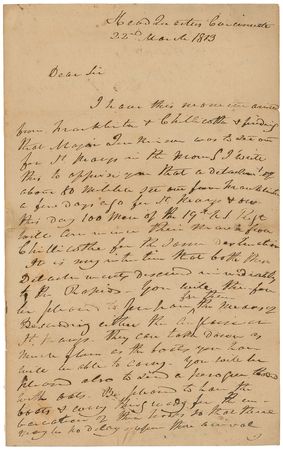 Head Quarters Cincinnati
22nd March 1813
Dear Sir
I have this moment arrived
from Franklinton & Chillicothe & finding
that Major was to set out
for St Marys in the morning I write
this to apprise you that a detachmt of
about 80 Militia set out from Franklinton
a few days ago for St Marys & on
this day 100 Men of the 19th U S Regt
will commence their march from
Chillicothe for the same destination
It is my intention that both these
Detachments descend immediately
to the Rapids. You will therefore
be pleased to prepare for them the means of
Descending either the or
St Marys. they can take down as
much flour as the boats you
will be able to carry. You will be
pleased also to send a perogue loaded
with oats. Be pleased to have the
boats & every thing ready for the em-
barcation of these troops so that there
may be no delay upon their arrival